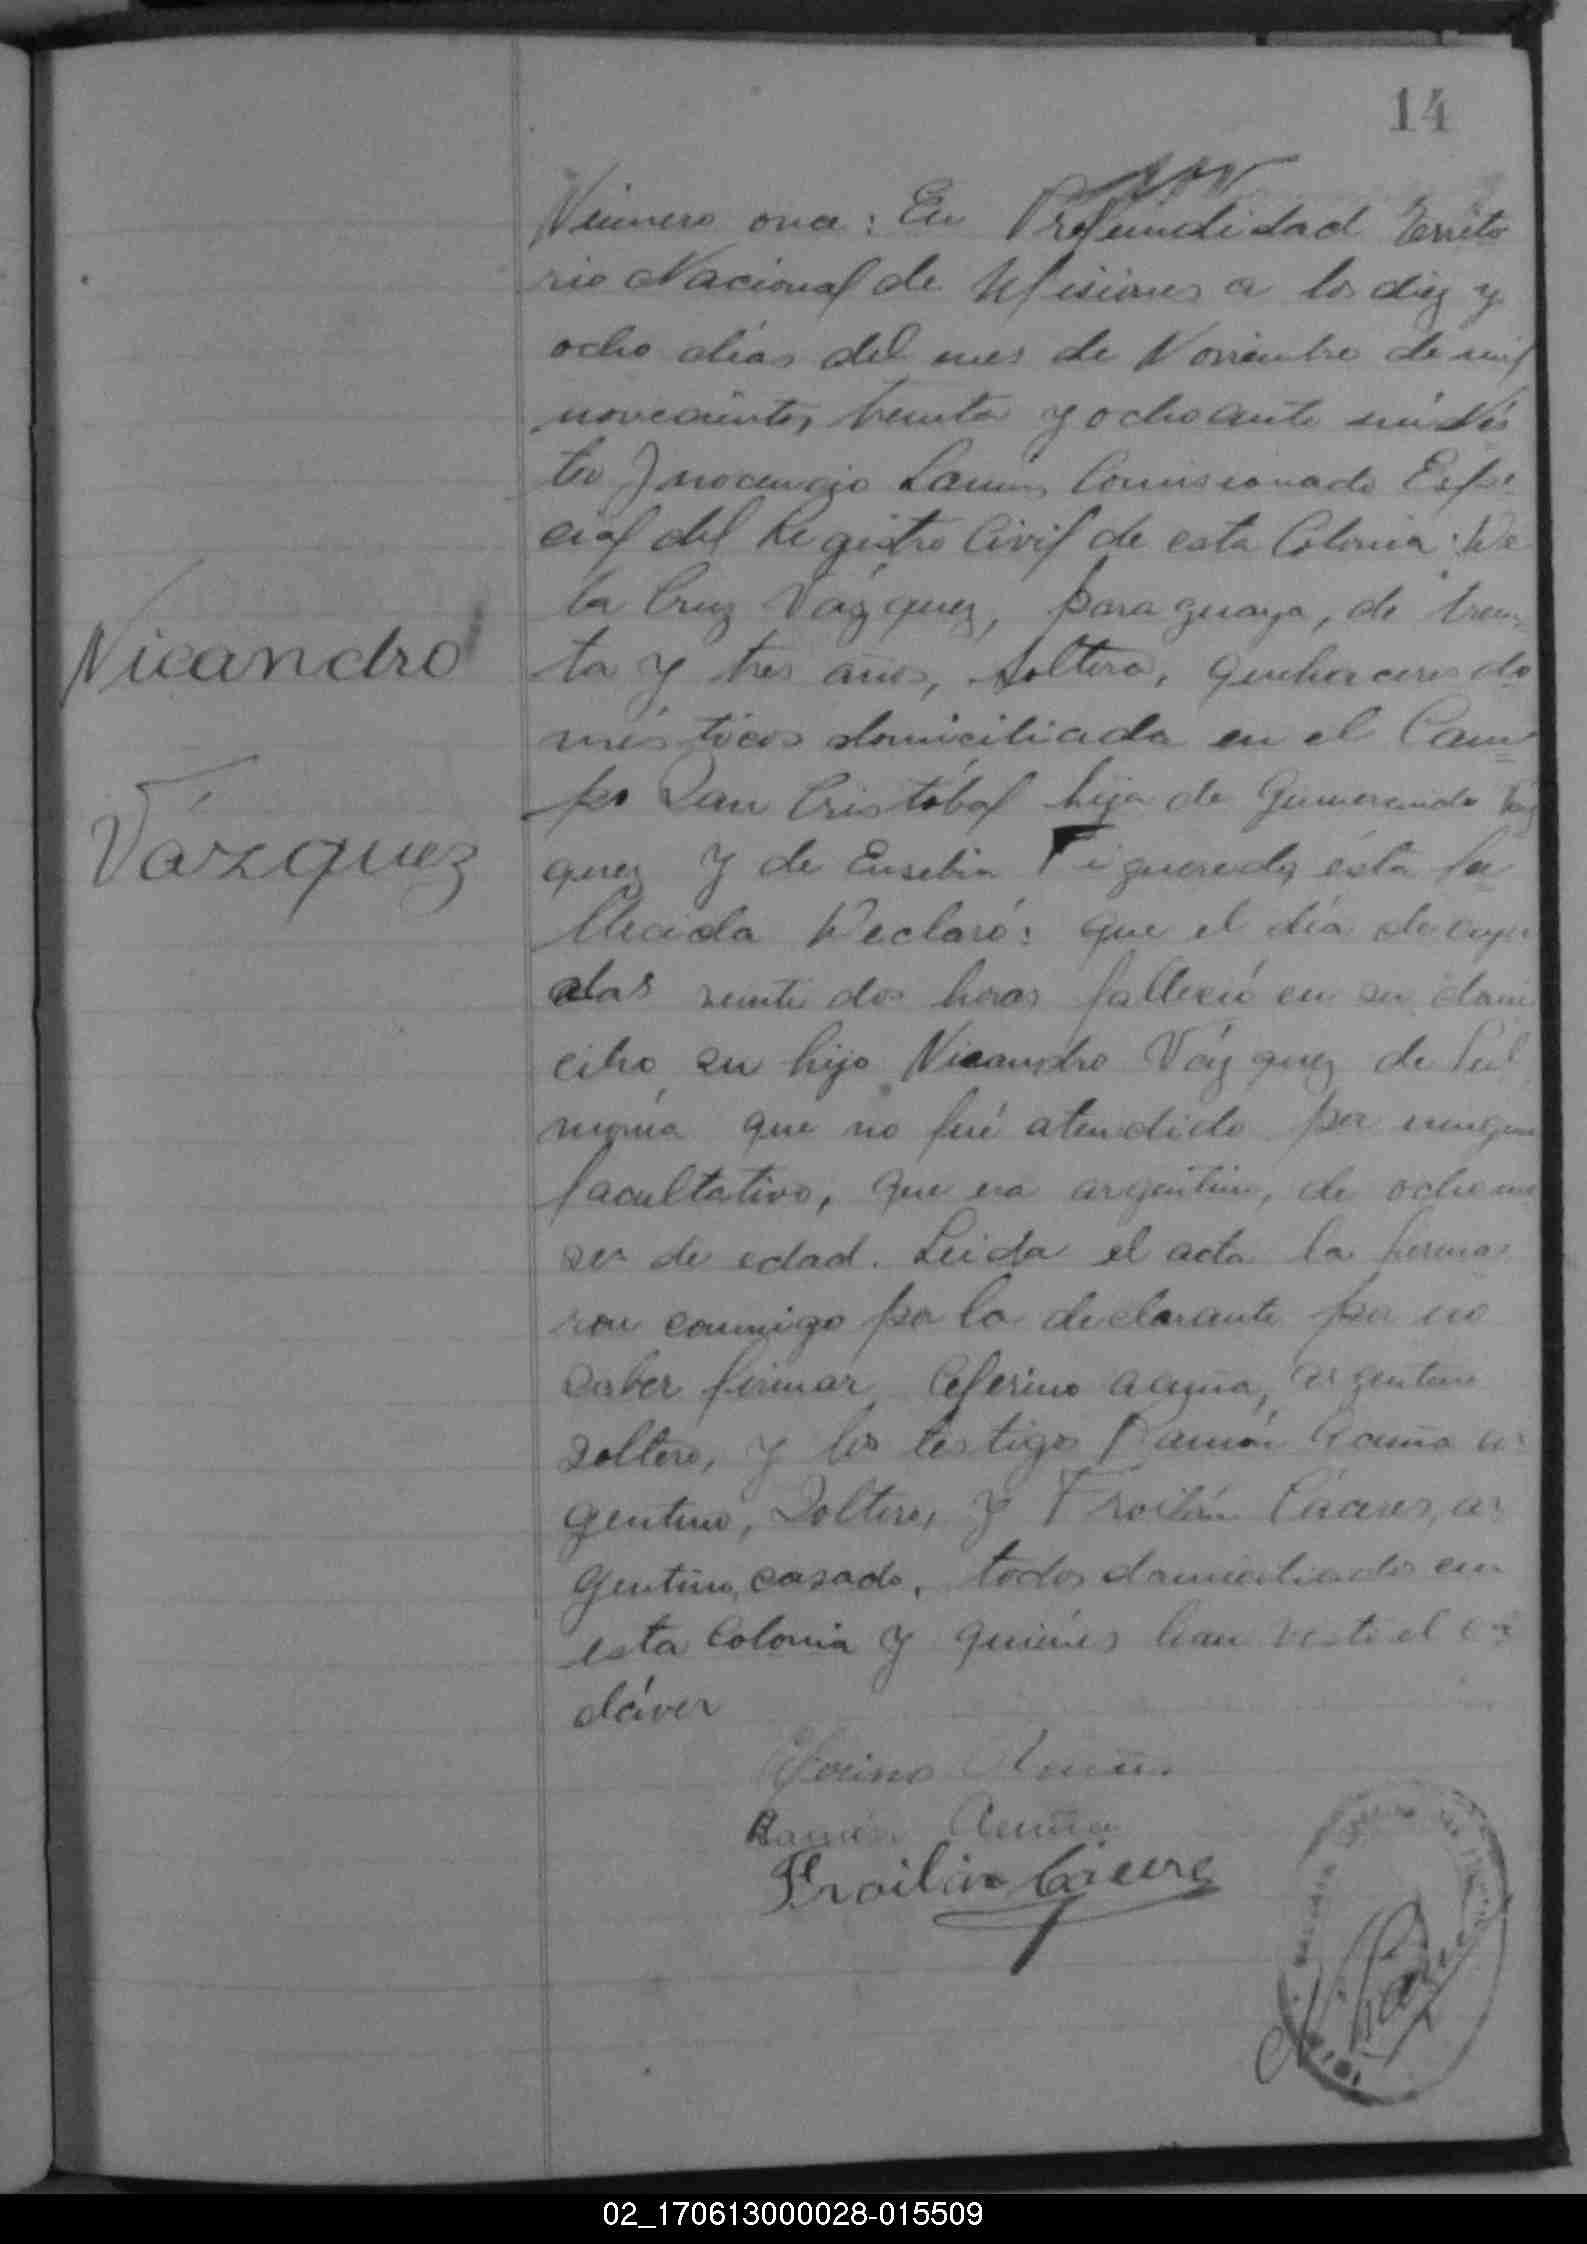 14
Número once: En Profundidad Territo
rio Nacional de Misiones a los diez y
ocho días del mes de Noviembre de mil
novecientos treinta y ocho ante mí Nés
tor Inocencio Comisionado Espe-
cial del Registro Civil de esta Colonia: De
la Cruz Vázquez, paraguaya, de trein-
ta y tres años, soltera, quehaceres do
Nicandro
mésticos domiciliada en el Cam-
po San Cristóbal hija de Gumersindo Váz
Vázquez
quez y de Eusebia Figueredo, ésta fa
llecida Declaró: que el día de ayer
alas veinte dos horas falleció en su domi
cilio, su hijo Nicandro Vázquez de Pul
monía que no fué atendido por ningun
facultativo, que era argentino, de ocho me
ses de edad. Leida el acta la firma
ron conmigo por la declarante por no
saber firmar, Ceferino Acuña, argentino
soltero, y los testigos Ramón Acuña ar
gentino, Soltero, y Froilán Cáceres, ar
gentino, casado, todos domiciliados en
esta Colonia y quiénes han visto el ca
dáver
Ceferino Acuña
Ramón Acuña
Froilán Cácere
02_170613000028-015509